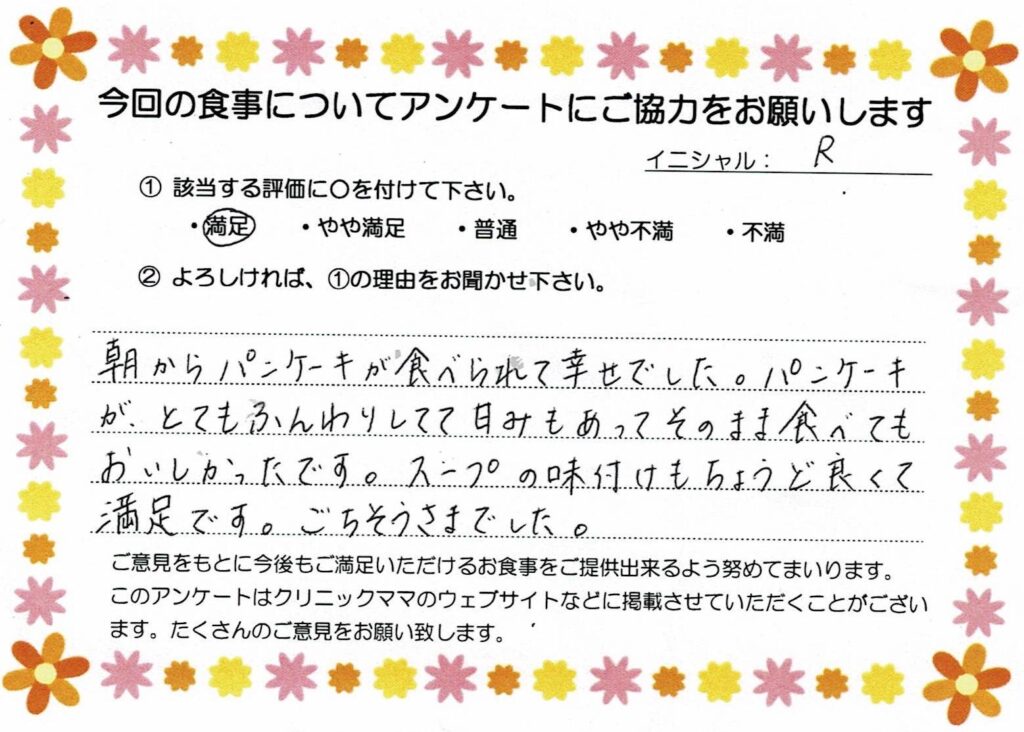 今回の食事についてアンケートにご協力をお願いします
イニシャル： R
① 該当する評価に〇を付けて下さい。
・満足 ・やや満足 ・普通 ・やや不満 ・不満
② よろしければ、①の理由をお聞かせ下さい。
朝からパンケーキが食べられて幸せでした。パンケーキ
が、とてもふんわりしてて甘みもあってそのまま食べても
おいしかったです。スープの味付けもちょうど良くて
満足です。ごちそうさまでした。
ご意見をもとに今後もご満足いただけるお食事をご提供出来るよう努めてまいります。
このアンケートはクリニックママのウェブサイトなどに掲載させていただくことがござい
ます。たくさんのご意見をお願い致します。